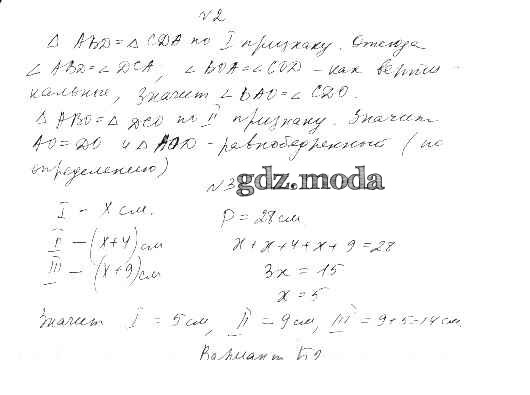 №2
△ АВD = △ CDA по I признаку. Отсюда
∠ ABD = ∠ DCA, ∠ BOA = ∠ COD - как верти-
кальные, значит ∠ BAO = ∠ CDO.
△ ABO = △ DCO по II признаку. Значит
AO = DO и △ AOD - равнобедренный (по
определению)
№3
gdz.moda
I - x см.
P = 28 см
II - (x+4) см
x + x + 4 + x + 9 = 28
III - (x+9) см
3x = 15
x = 5
Значит I = 5 см, II = 9 см, III = 9+5=14 см.
Вариант